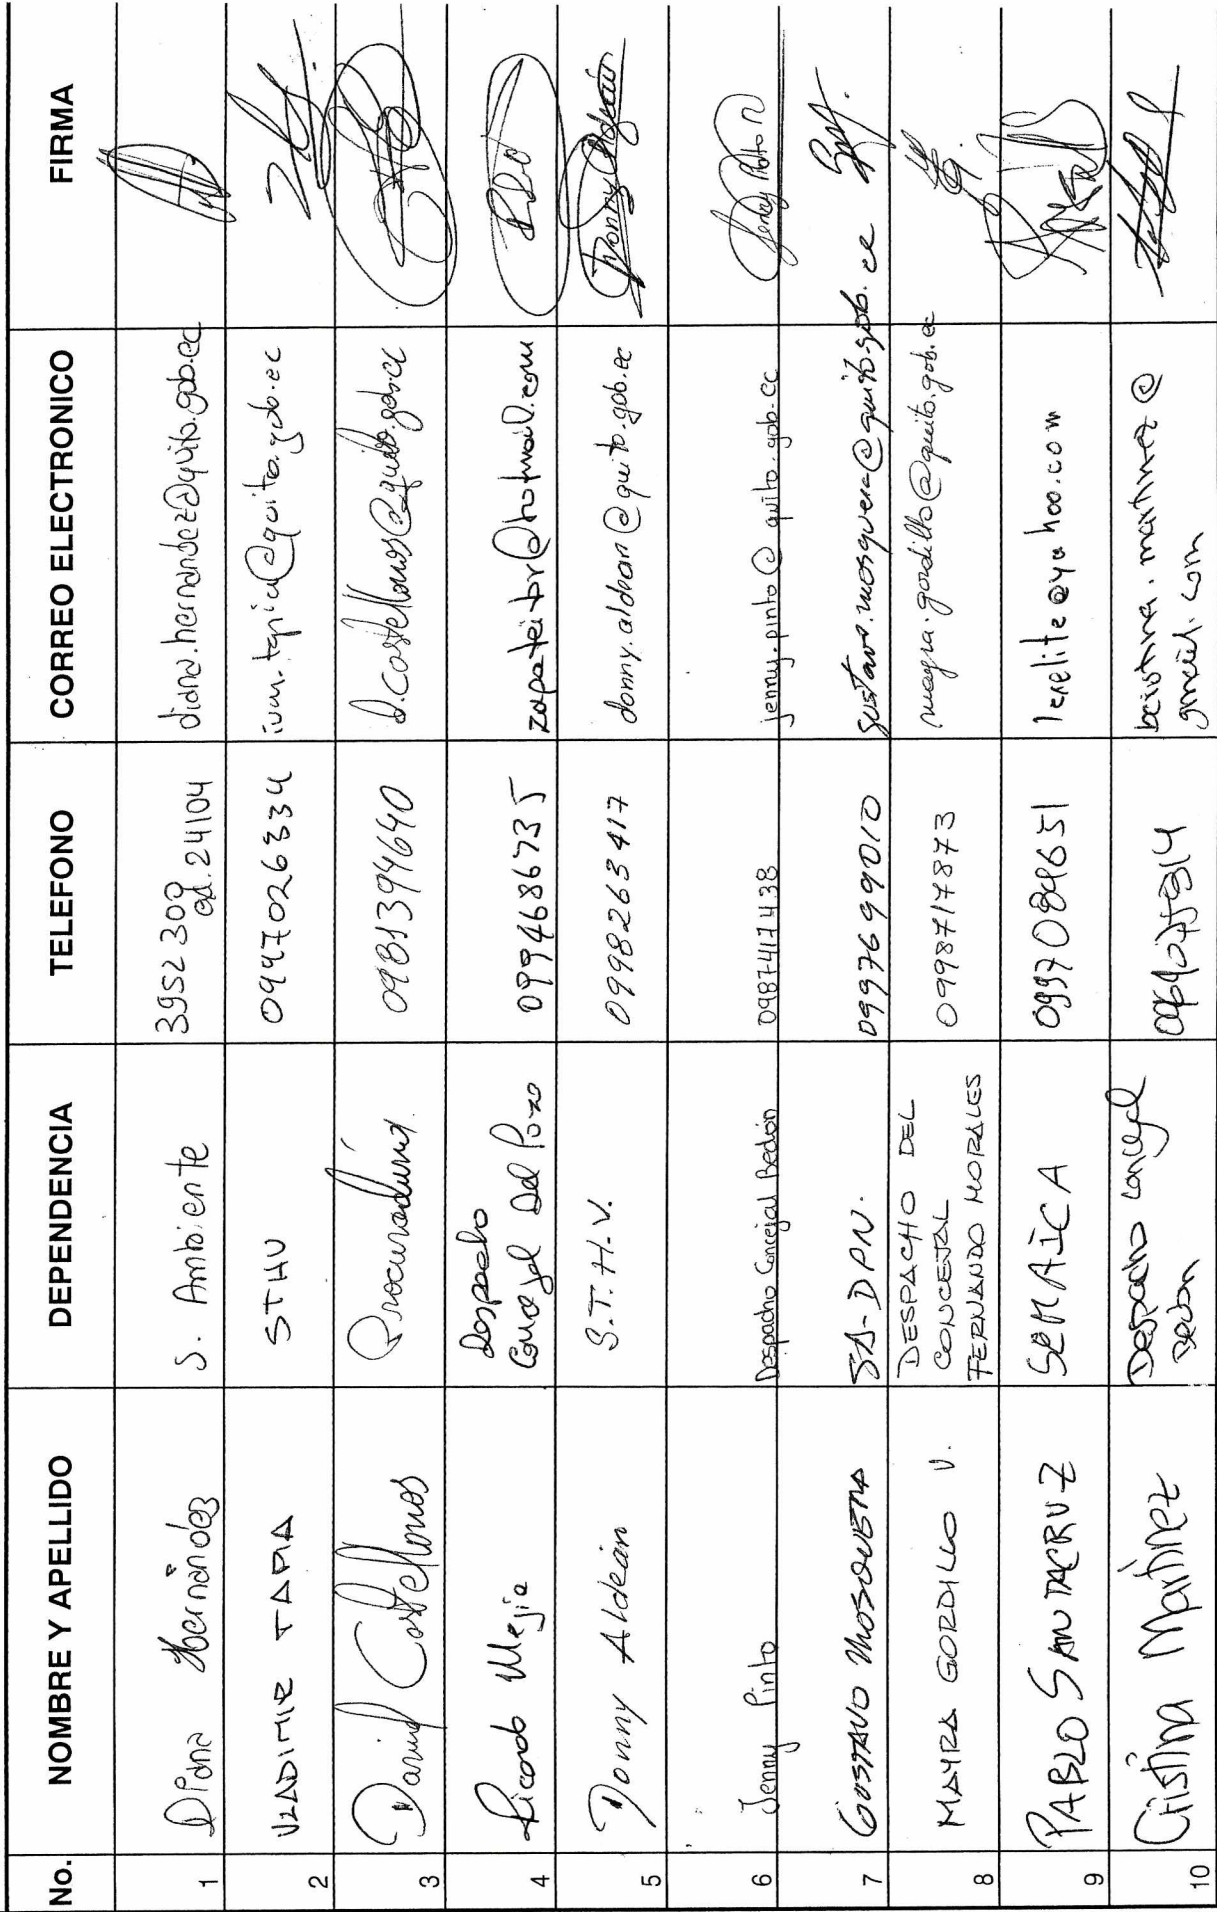 No. NOMBRE Y APELLIDO DEPENDENCIA TELEFONO CORREO ELECTRONICO FIRMA
1 Diana Hernández S. Ambiente 3952300 ext. 24104 diana.hernandez@quito.gob.ec
2 VLADIMIR TAPIA STHV 0997026334 ivan.tapia@quito.gob.ec
3 Daniel Castellanos Procuraduría 0981394640 d.castellanos@quito.gob.ec
4 Ricardo Mejia Despacho
Concejal Del Pozo 0994686735 zapateitor@hotmail.com
5 Donny Aldeán S.T.H.V. 0998263417 donny.aldean@quito.gob.ec Donny Aldeán
6 Jenny Pinto Despacho Concejal Bedón 0987417438 jenny.pinto@quito.gob.ec Jenny Pinto
7 GUSTAVO MOSQUERA SA-DPN. 0997699010 gustavo.mosquera@quito.gob.ec
8 MAYRA GORDILLO V. DESPACHO DEL
CONCEJAL
FERNANDO MORALES 0998717873 mayra.gordillo@quito.gob.ec
9 PABLO SANTACRUZ SEMAICA 0997084651 lexelite@yahoo.com
10 Cristina Martinez Despacho Concejal
Bedon martinez@
gmail.com